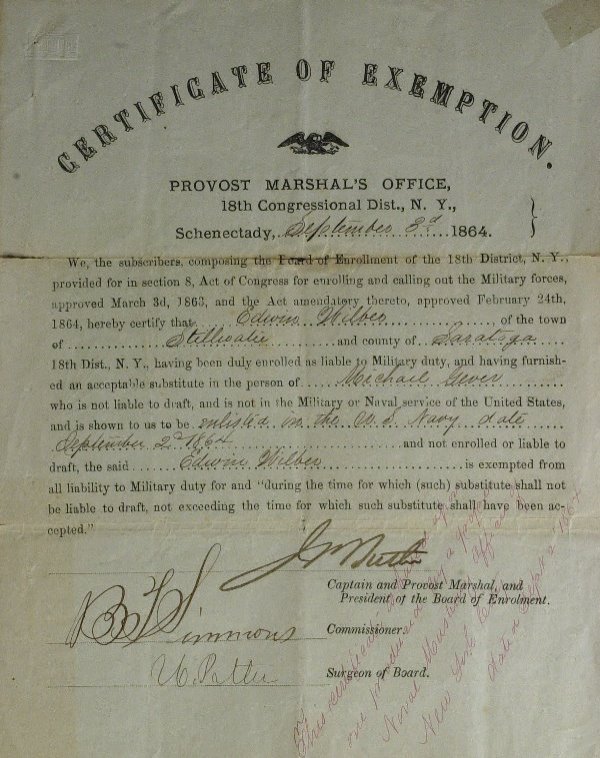 CERTIFICATE OF EXEMPTION.
PROVOST MARSHAL'S OFFICE,
18th Congressional Dist., N. Y.,
Schenectady, September 3d 1864.
We, the subscribers, composing the Board of Enrollment of the 18th District, N. Y.,
provided for in section 8, Act of Congress for enrolling and calling out the Military forces,
approved March 3d, 1863, and the Act amendatory thereto, approved February 24th,
1864, hereby certify that Edwin Wilber, of the town
of Stillwater and county of Saratoga
18th Dist., N. Y., having been duly enrolled as liable to Military duty, and having furnish-
ed an acceptable substitute in the person of Michael
who is not liable to draft, and is not in the Military or Naval service of the United States,
and is shown to us to be enlisted in the U.S. Navy date
September 2d 1864 and not enrolled or liable to
draft, the said Edwin Wilber is exempted from
all liability to Military duty for and "during the time for which (such) substitute shall not
be liable to draft, not exceeding the time for which such substitute shall have been ac-
cepted."
Captain and Provost Marshal, and
President of the Board of Enrolment.
B F Simmons Commissioner.
Surgeon of Board.
This certificate issued upon
one produced by a proper
Naval Officer of
New York City
dated Sept 2 1864